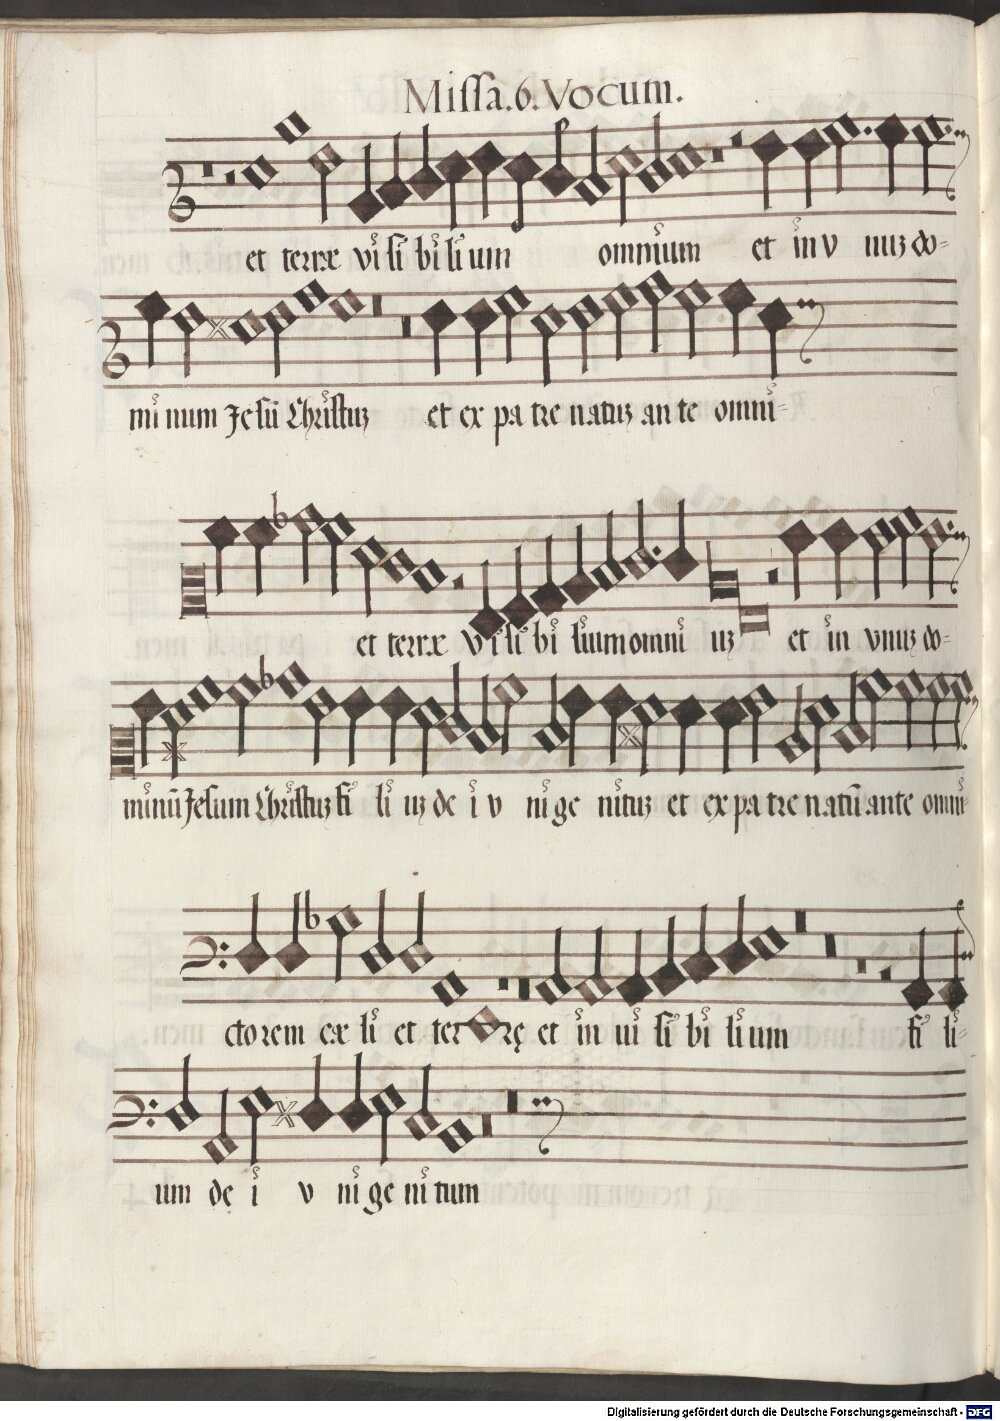 Missa.6.Vocum.
et terræ visibilium omnium et in v nuz do=
minum Jesū Christuz et ex patre natuz ante omni=
et terræ visibi liumomni uz et in vnuz do=
minū Jesum Christuz fi li uz de i v ni ge nituz et ex patre natū ante omni=
ctorem cæ li et ter rę et in ui si bi li um fi li=
um de i v ni ge ni tum
Digitalisierung gefördert durch die Deutsche Forschungsgemeinschaft - DFG